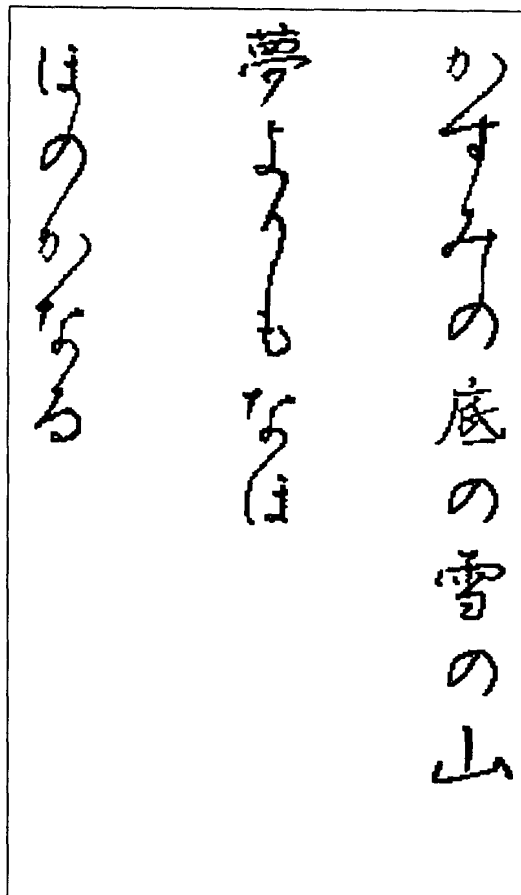 かすみの底の雪の山
夢よりもなほ
ほのかなる